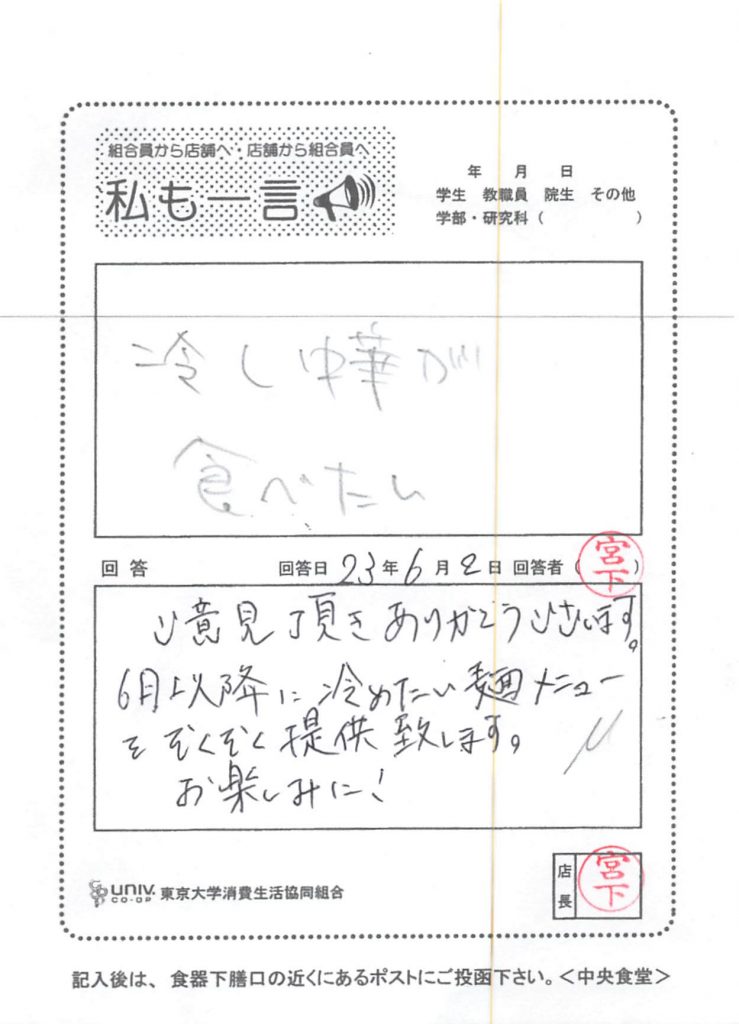 組合員から店舗へ・店舗から組合員へ
私も一言
年 月 日
学生 教職員 院生 その他
学部・研究科（ ）
冷し中華が
食べたい
回答 回答日 23年6月2日 回答者（宮下）
ご意見頂きありがとうございます。
6月以降に冷めたい麺メニュー
をぞくぞく提供致します。
お楽しみに！
UNIV. CO-OP 東京大学消費生活協同組合
店長 宮下
記入後は、食器下膳口の近くにあるポストにご投函下さい。＜中央食堂＞